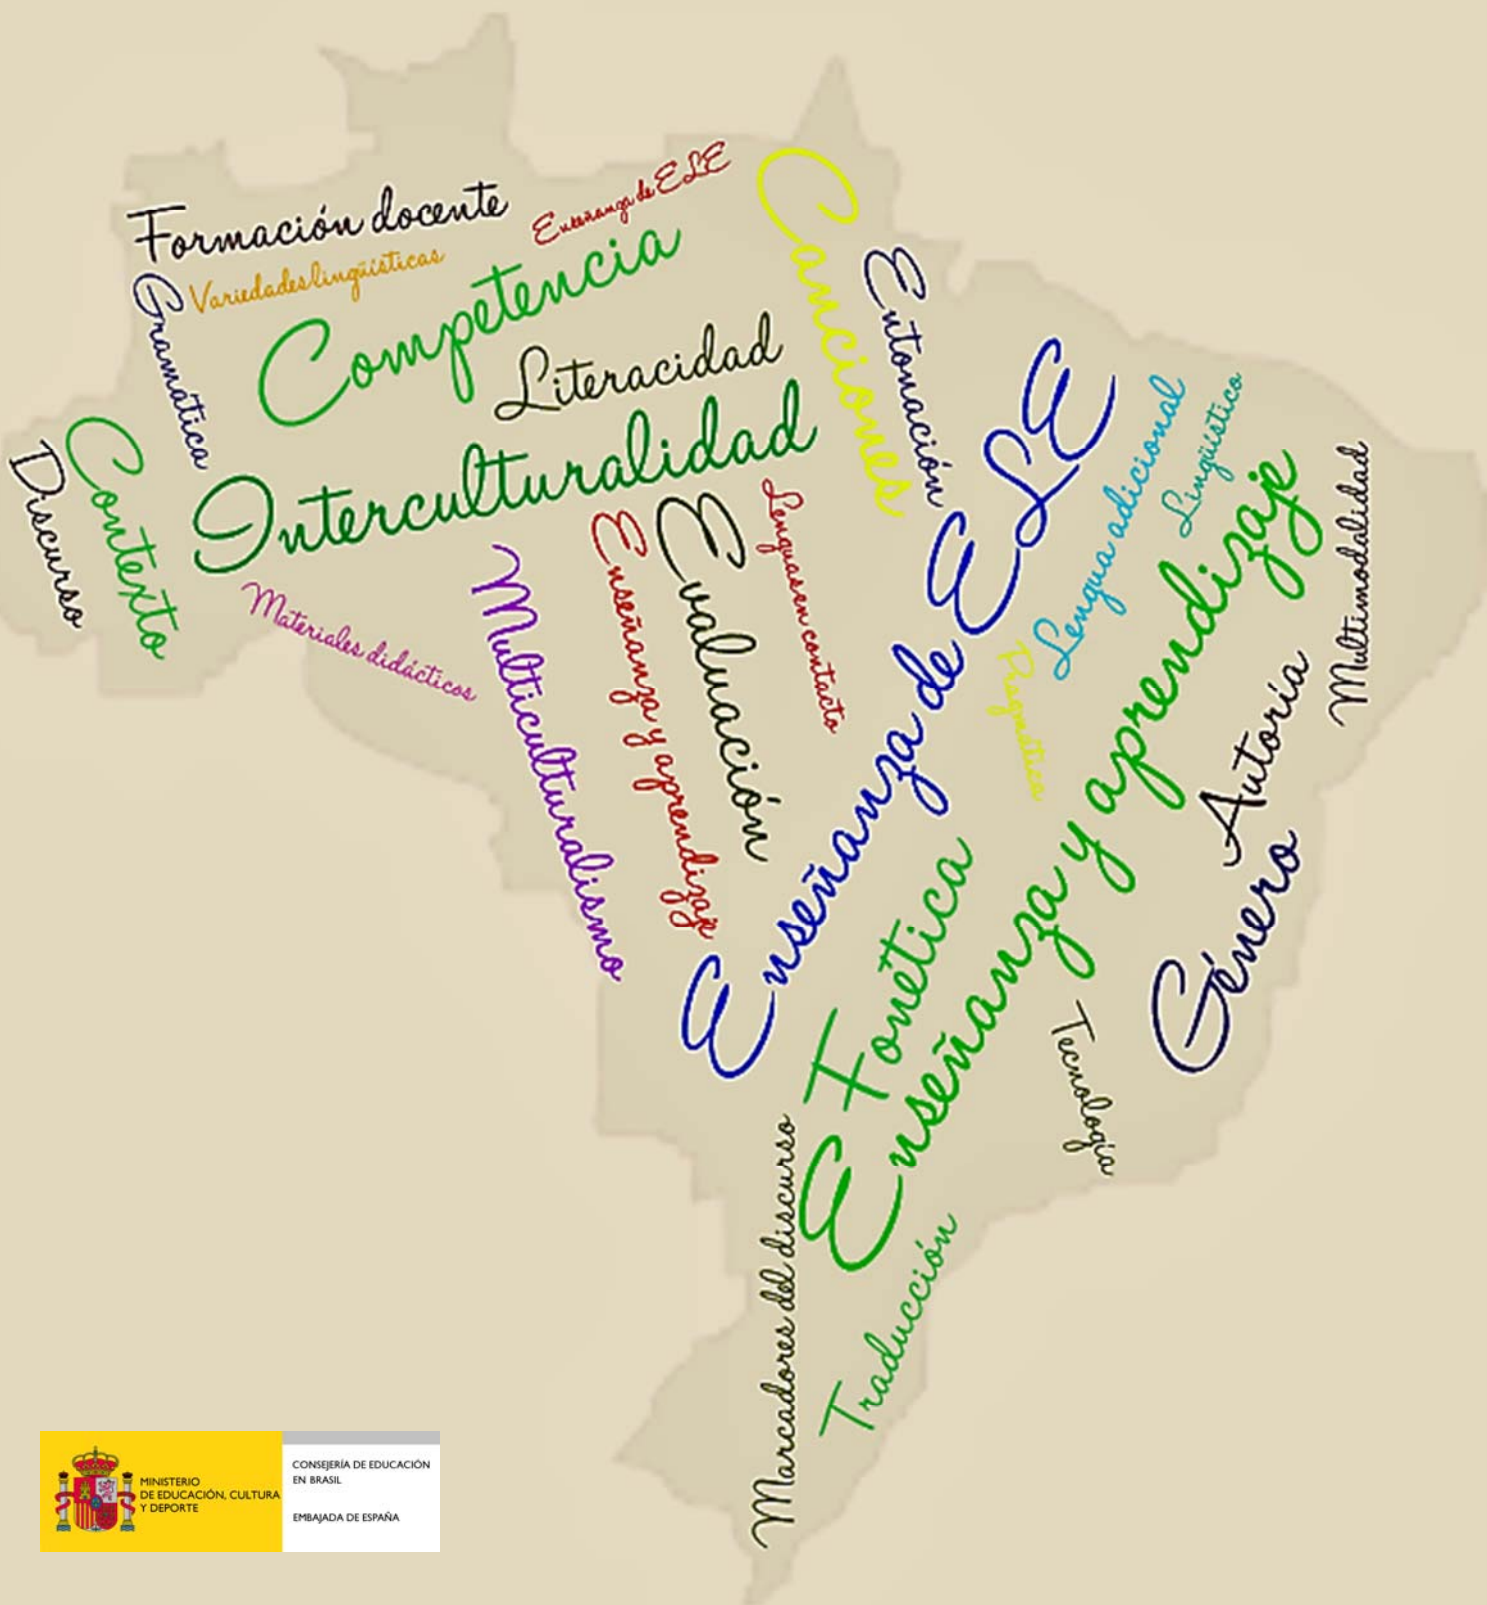 Formación docente
Enseñanza de ELE
Variedades lingüísticas
Gramática
Competencia
Canciones
Entonación
Literacidad
Interculturalidad
Discurso
Contexto
Materiales didácticos
Multiculturalismo
Enseñanza y aprendizaje
Evaluación
Lenguas en contacto
Enseñanza de ELE
Lengua adicional
Lingüístico
Multimodalidad
Pragmática
Enseñanza y aprendizaje
Autoría
Género
Fonética
Tecnología
Marcadores del discurso
Traducción
MINISTERIO
DE EDUCACIÓN, CULTURA
Y DEPORTE
CONSEJERÍA DE EDUCACIÓN
EN BRASIL
EMBAJADA DE ESPAÑA